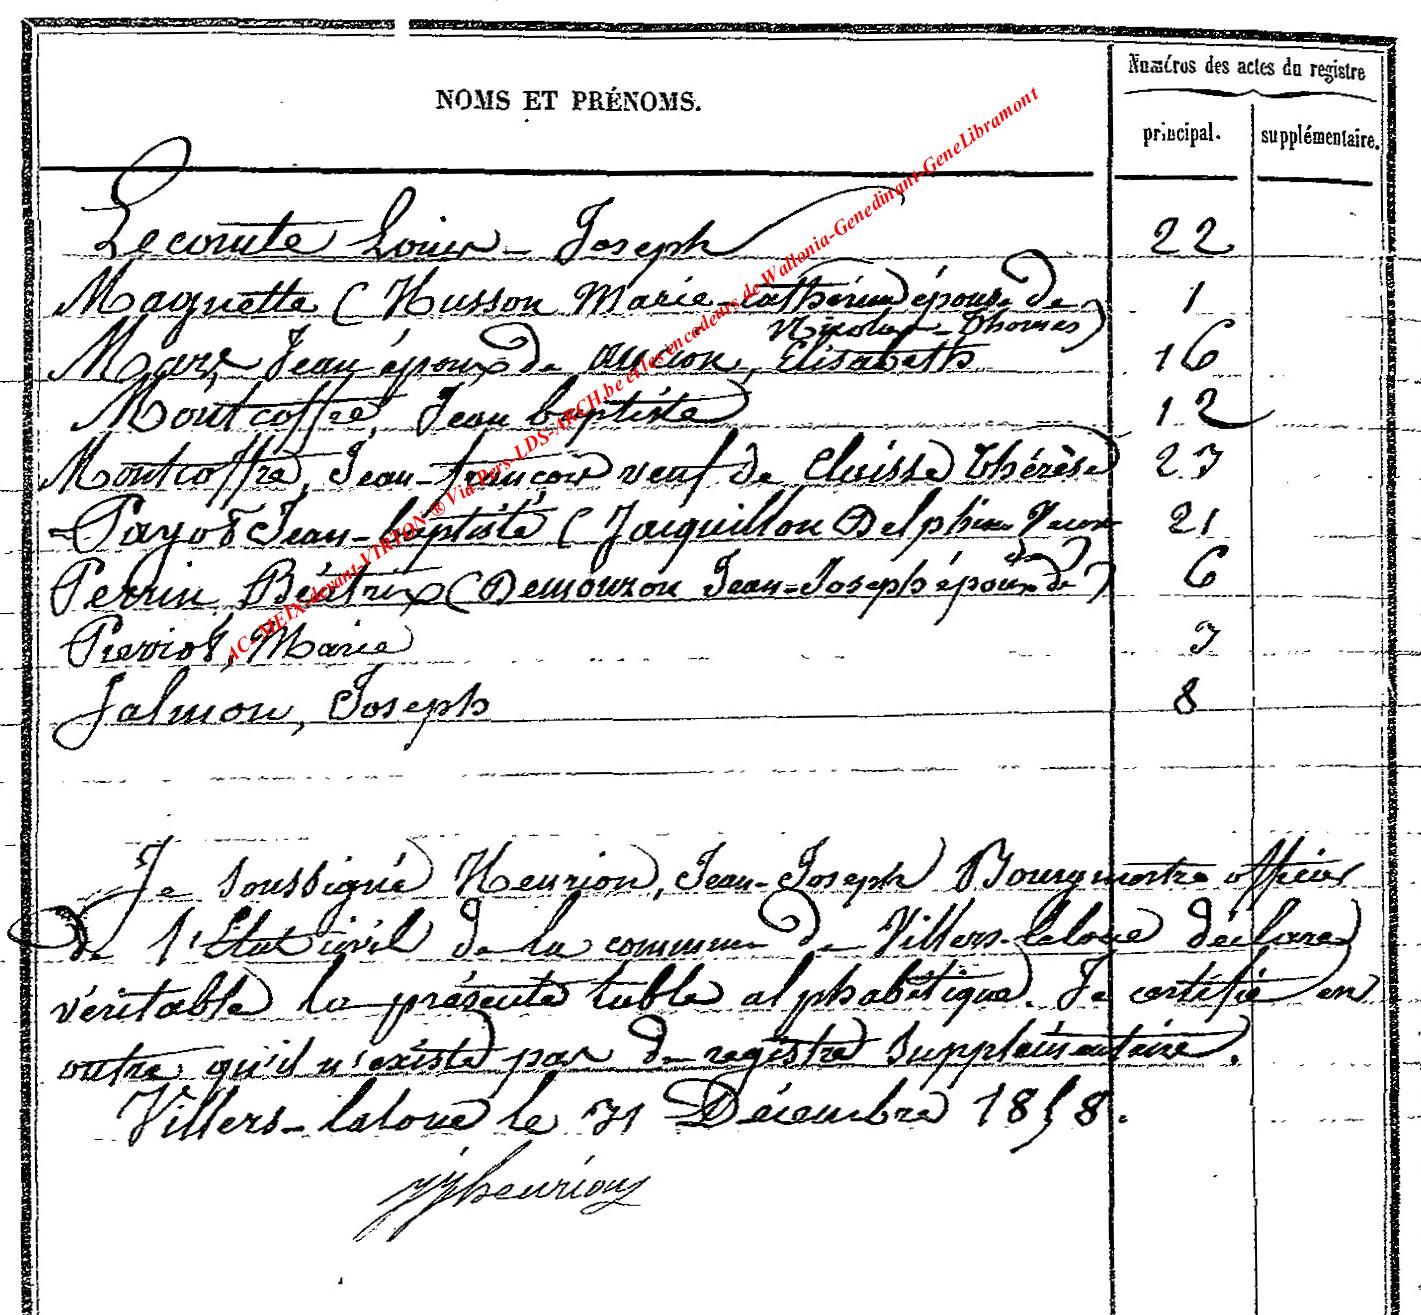 NOMS ET PRÉNOMS.
Numéros des actes du registre
principal. supplémentaire.
Lecomte Louis - Joseph 22
Maguette (Husson Marie-Catherine épouse de 1
Nicolas-Thomas)
Jean époux de Elisabeth 16
Montcoffré, Jean baptiste 12
Montcoffré, Jean-françois veuf de Claisse Thérèse 23
Payot Jean-baptiste (Jacquillon Delphine 21
Perrin, Béatrix (Demouzon Jean-Joseph époux de) 6
Pierriot, Marie 3
Salmon, Joseph 8
Je soussigné Henrion, Jean-Joseph Bourgmestre officier
de l'État civil de la commune de Villers-laloue déclare
véritable la présente table alphabétique. Je certifie en
outre qu'il n'existe pas de registre supplémentaire.
Villers-laloue le 31 Décembre 1858.
jjhenrion
AC-MEIX-devant-VIRTON-® Via Pers-LDS-ARCH.be et les encodeurs de Wallonia-Genedinant-GeneLibramont